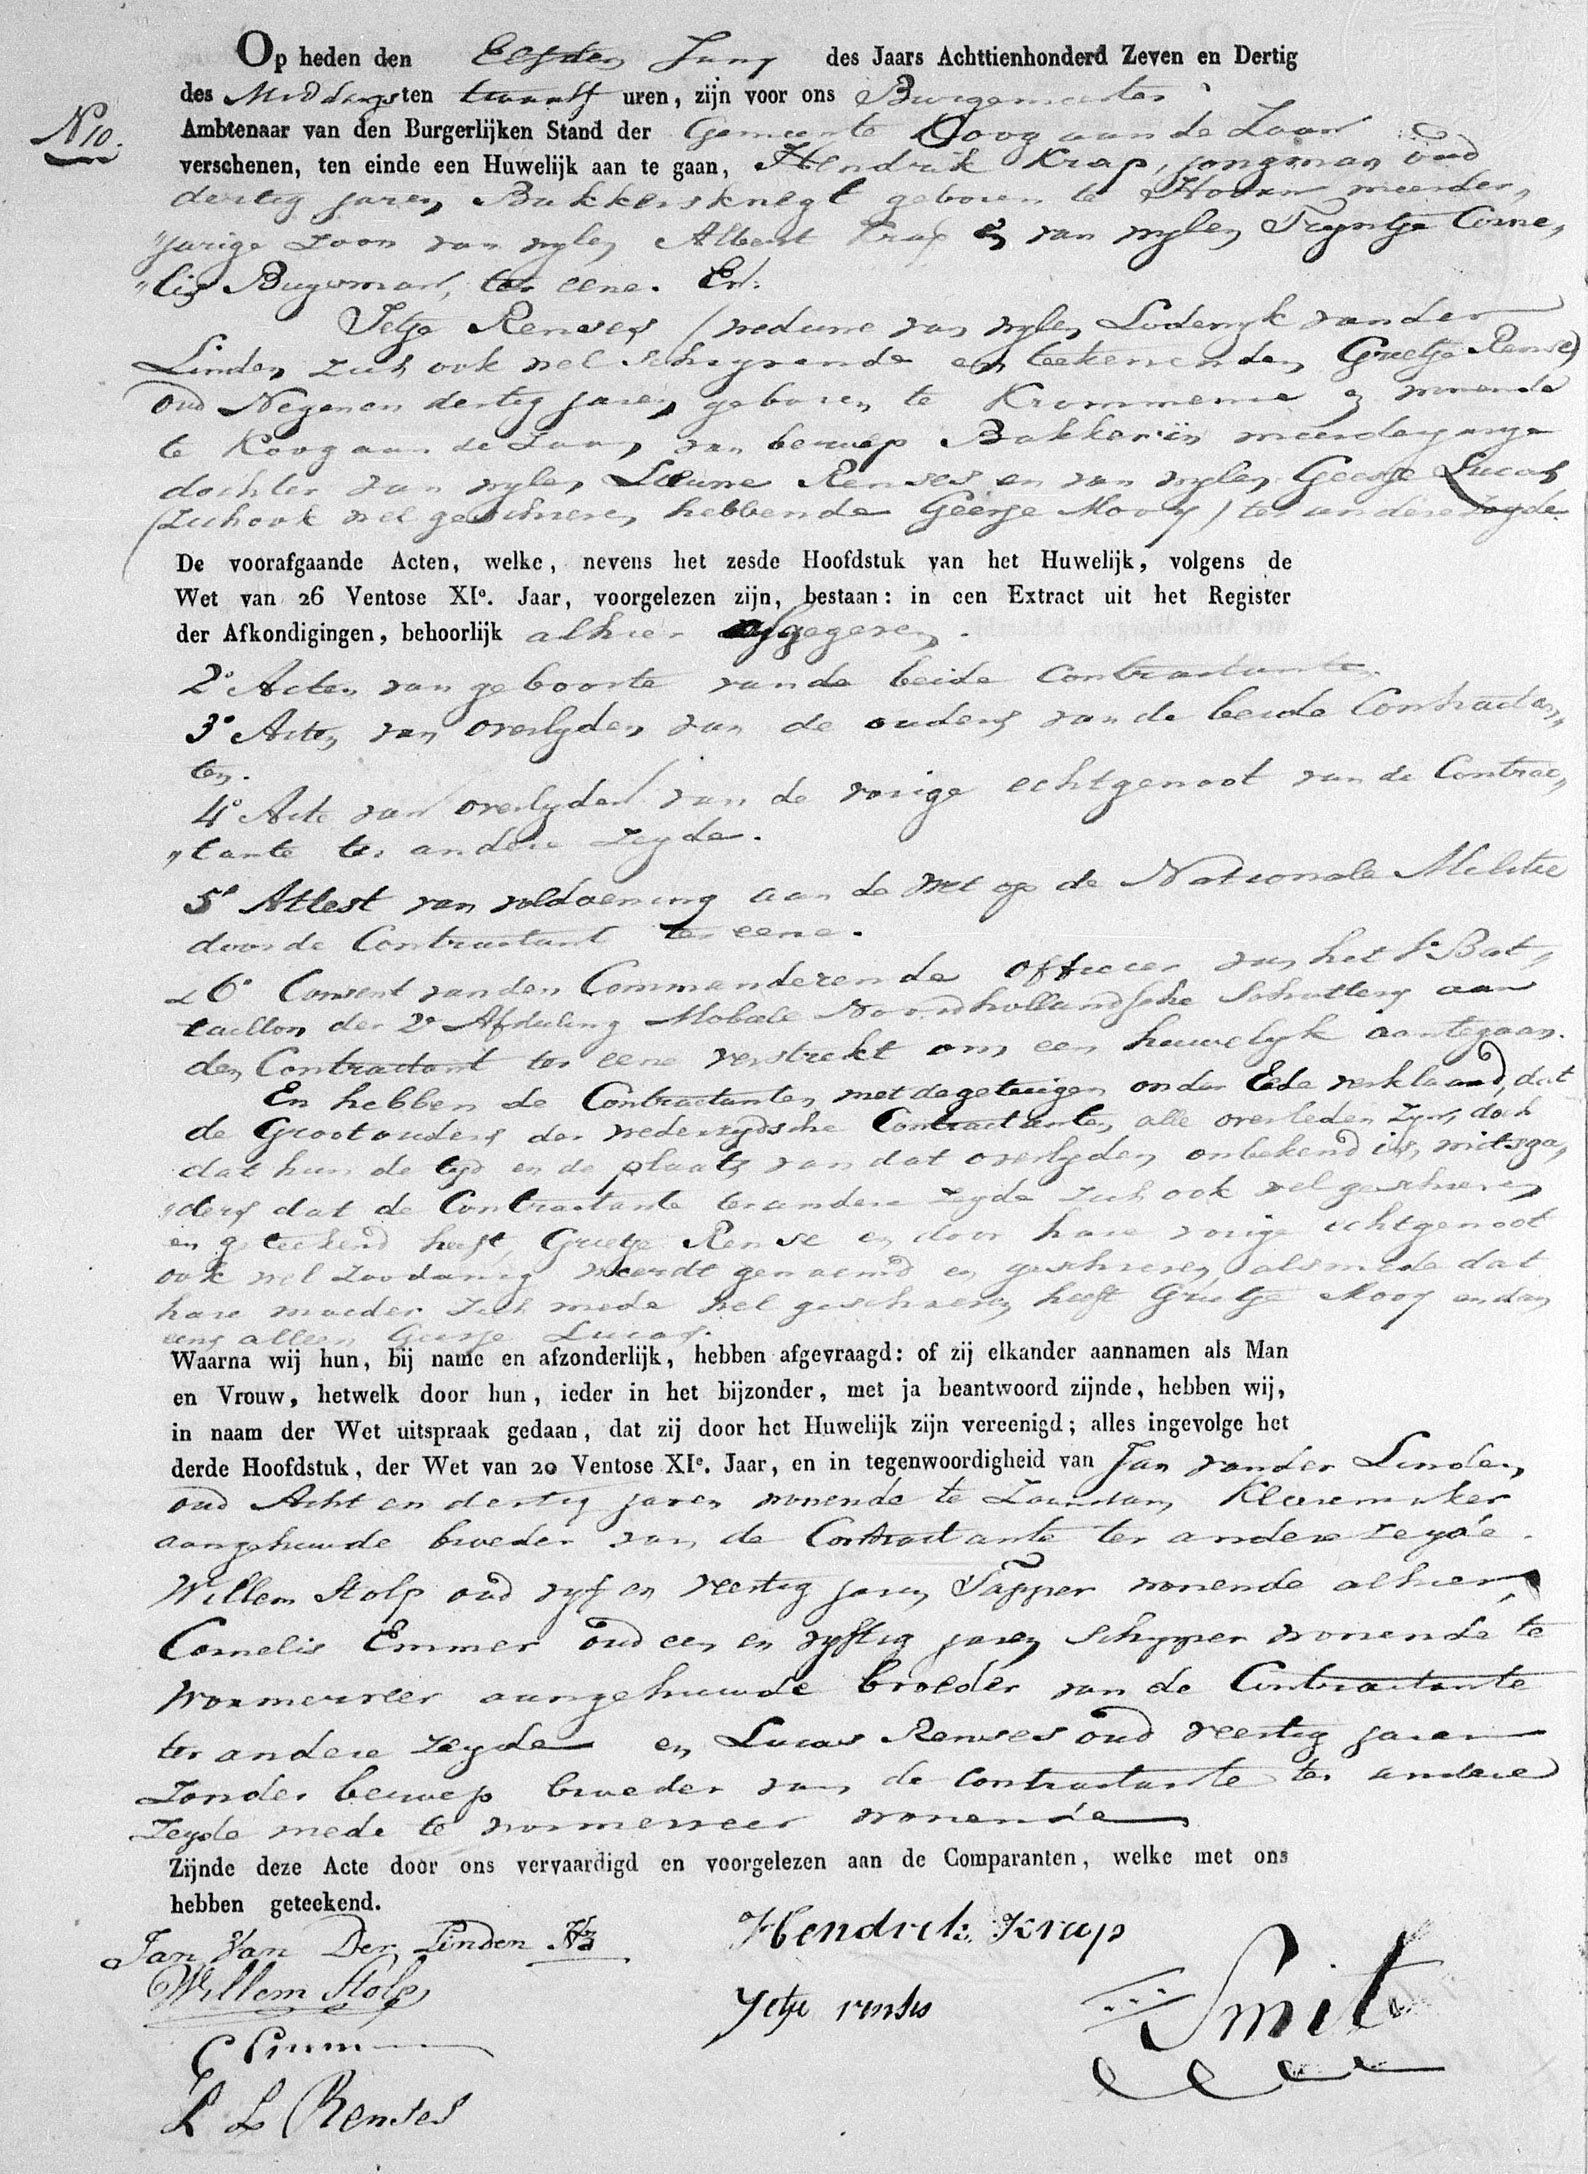 Op heden den Elfden Juny des Jaars Achttienhonderd Zeven en Dertig
des Middags ten twaalf uren, zijn voor ons Burgemeester
N 10.
Ambtenaar van den Burgerlijken Stand der Gemeente Koog aan de Zaan
verschenen, ten einde een Huwelijk aan te gaan, Hendrik Krap, jongman oud
dertig jaren, Bakkersknegt geboren te Hoorn meerder„
„jarige Zoon van wylen Albert Krap en van wylen Tryntje Corne„
„lis Buysman, ter eene. En
Jetje Renses (weduwe van wylen Lodewyk vander
Linden zich ook wel schryvende en teekenenden Grietje Rense)
oud Negen en dertig jaren, geboren te Krommenie en wonende
te Koog aan de Zaan, van beroep Bakkerin meerderjarige
dochter van wylen Lieuwe Renses en van wylen Geesje Lucas
(zich ook wel geschreven hebbende Geesje Mooy) ter andere zeyde.
De voorafgaande Acten, welke, nevens het zesde Hoofdstuk van het Huwelijk, volgens de
Wet van 26 Ventose XIe. Jaar, voorgelezen zijn, bestaan: in een Extract uit het Register
der Afkondigingen, behoorlijk alhier afgegeven.
2o Acten van geboorte vande beide Contractanten
3o Acten van overlyden van de ouders van de beide Contractan„
ten.
4o Acte van overlyden van de vorige echtgenoot van de Contrac„
„tante ter andere zeyde.
5o Attest van voldoening aan de wet op de Nationale Militie
door de Contractant ter eene.
6o Consent van den Commanderende officier van het 1e Bat„
taillon der 2e Afdeling Mobiele Noordhollandsche Schuttery aan
den Contractant ter eene verstrekt om een huwelyk aantegaan.
En hebben de Contractanten met de getuigen onder Eede verklaard, dat
de Grootouders der wederzydsche Contractanten alle overleden zyn, doch
dat hun de tyd en de plaats van dat overlyden onbekend is, mitsga„
„ders dat de Contractante ter andere zeyde zich ook wel geschreven
en geteekend heeft, Grietje Rense en door hare vorige echtgenoot
ook wel zoodanig werdt genaemd en geschreven alsmede dat
hare moeder zich mede wel geschreven heeft Grietje Mooy en dan
eens alleen Geesje Lucas.
Waarna wij hun, bij name en afzonderlijk, hebben afgevraagd: of zij elkander aannamen als Man
en Vrouw, hetwelk door hun, ieder in het bijzonder, met ja beantwoord zijnde, hebben wij,
in naam der Wet uitspraak gedaan, dat zij door het Huwelijk zijn vereenigd; alles ingevolge het
derde Hoofdstuk, der Wet van 20 Ventose XIe. Jaar, en in tegenwoordigheid van Jan vander Linden
oud Acht en dertig jaren wonende te Zaandam, Kleremaker
aangehuwde broeder van de Contractante ter andere zeyde.
Willem Stolp oud vyf en veertig jaren Tapper wonende alhier,
Cornelis Emmer oud een en vyftig jaren schipper wonende te
Wormerveer aangehuwde broeder van de Contractante
ter andere zeyde en Lucas Renses oud veertig jaren
zonder beroep broeder van de contractante ter andere
zeyde mede te wormerveer wonende
Zijnde deze Acte door ons vervaardigd en voorgelezen aan de Comparanten, welke met ons
hebben geteekend.
Jan Van Der Linden Hz
Hendrik Krap
Willem Stolp
Jetje renses
Smit
C Emmer
L L Renses